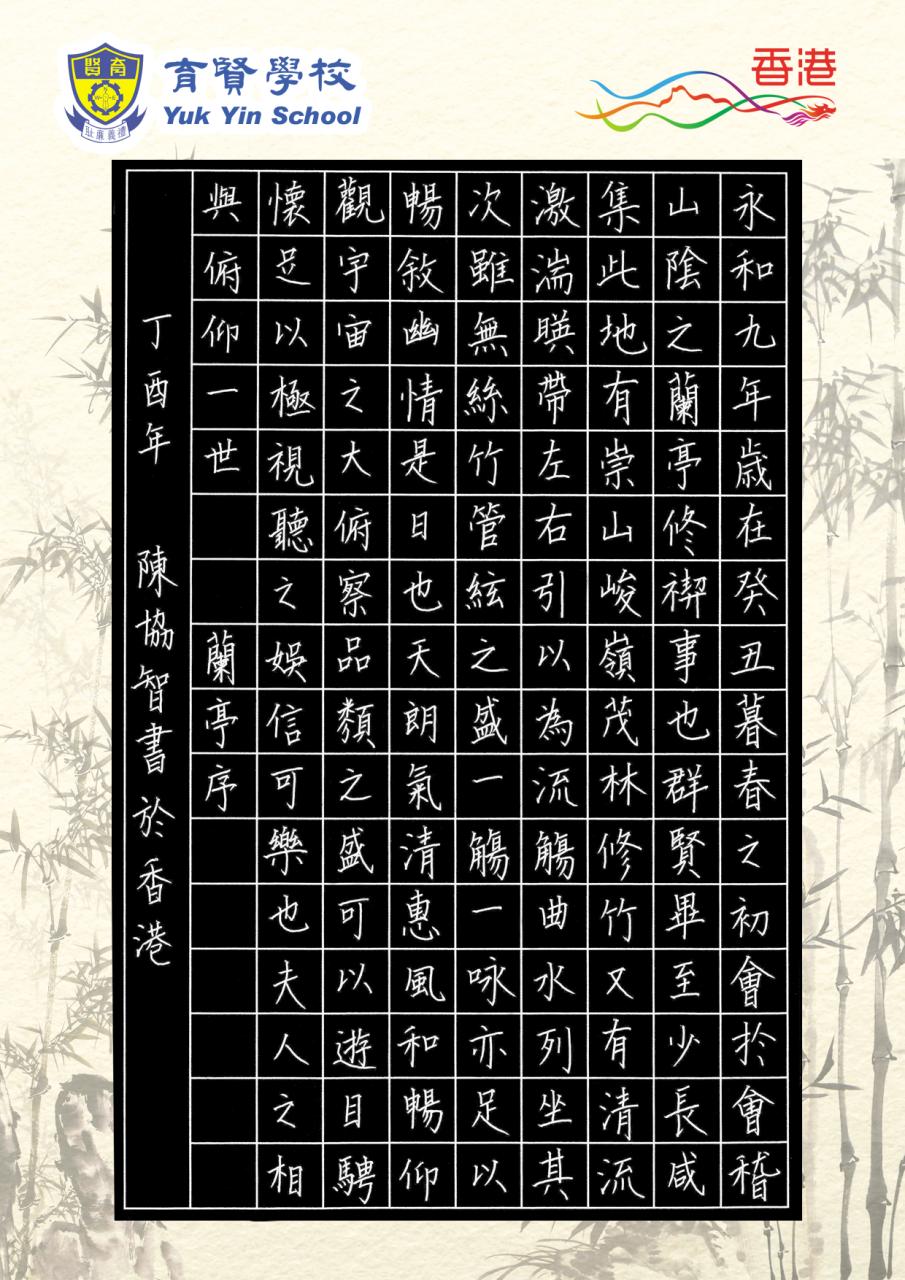 育賢學校
Yuk Yin School
育賢
禮義廉恥
香港
永和九年歲在癸丑暮春之初會於會稽
山陰之蘭亭修禊事也群賢畢至少長咸
集此地有崇山峻嶺茂林修竹又有清流
激湍暎帶左右引以為流觴曲水列坐其
次雖無絲竹管絃之盛一觴一咏亦足以
暢敘幽情是日也天朗氣清惠風和暢仰
觀宇宙之大俯察品類之盛可以遊目騁
懷足以極視聽之娛信可樂也夫人之相
與俯仰一世 蘭亭序
丁酉年 陳協智書於香港